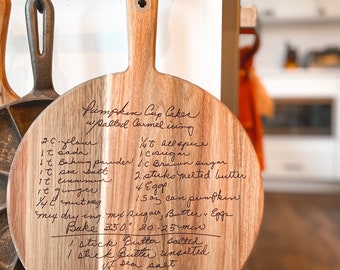 Pumpkin Cup Cakes
w/ Salted Carmel icing
2 C flour
1 t soda
1 t Baking powder
1 t sea salt
1 t cinnamon
1 t ginger
1/4 t nutmeg
1/4 t allspice
1 C sugar
1 C Brown sugar
2 sticks melted butter
4 Eggs
15 oz can pumpkin
mix dry ing mix sugar, Butter & Eggs
Bake 350° 20-25 min
1 stick Butter salted
1 stick Butter unsalted
sea salt